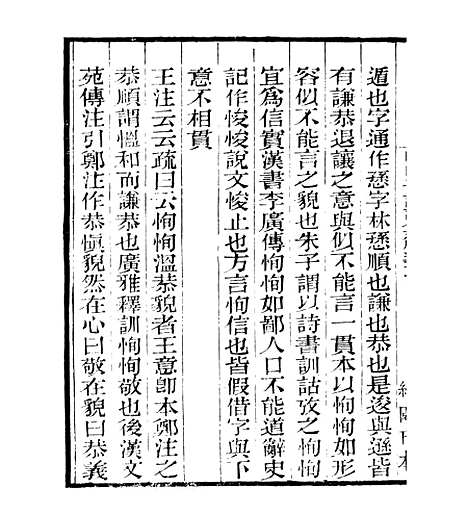 遁也字通作愻字林愻順也謙也恭也是遜與遜皆
有謙恭退讓之意與似不能言一貫本以恂恂如形
容似不能言之貌也朱子謂以詩書訓詁攷之恂恂
宜爲信實漢書李廣傳恂恂如鄙人口不能道辭史
記作悛悛說文悛止也方言恂信也皆假借字與下
意不相貫
王注云云疏曰云恂恂溫恭貌者王意卽本鄭注之
恭順謂慍和而謙恭也廣雅釋訓恂恂敬也後漢文
苑傳注引鄭注作恭愼貌然在心曰敬在貌曰恭義